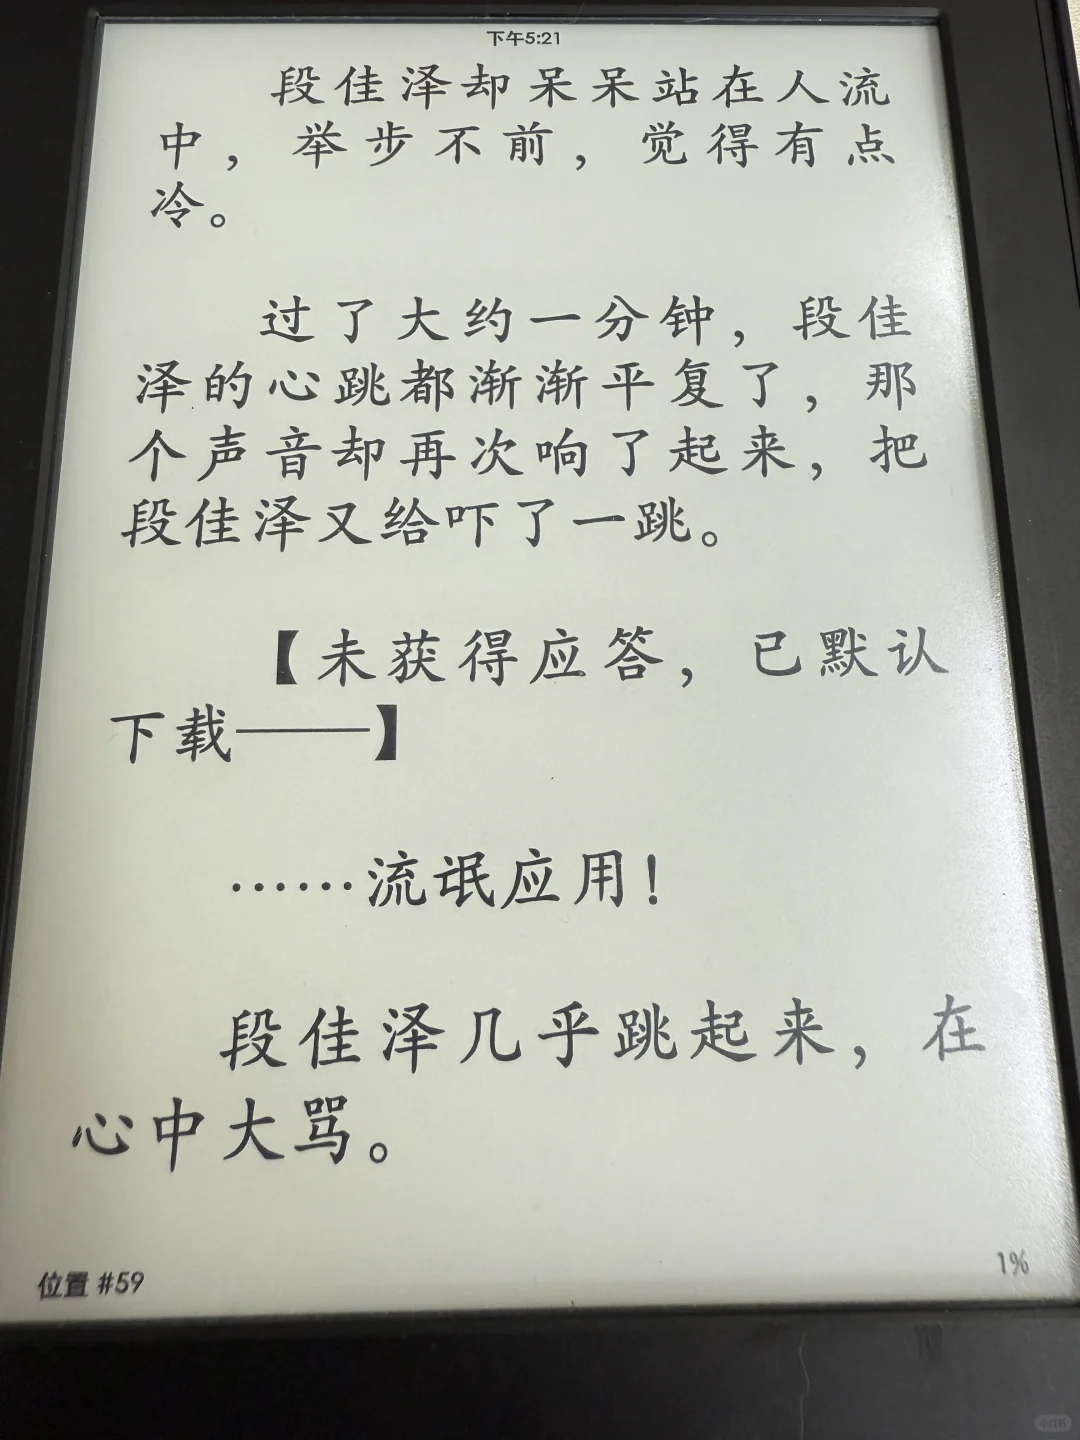 下午5:21
段佳泽却呆呆站在人流
中，举步不前，觉得有点
冷。
过了大约一分钟，段佳
泽的心跳都渐渐平复了，那
个声音却再次响了起来，把
段佳泽又给吓了一跳。
【未获得应答，已默认
下载——】
……流氓应用！
段佳泽几乎跳起来，在
心中大骂。
位置 #59
1%
小红书